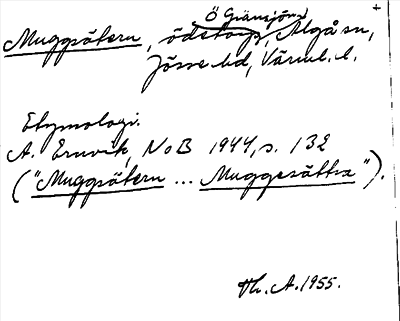 Ö Gränsjön
Muggsätern, ödetorp, Älgå sn,
Jösse hd, Värml. l.
Etymologi.
A. Ernvik, NoB 1944, s. 132
("Muggsätern ... Muggesättra").
Th. A. 1955.